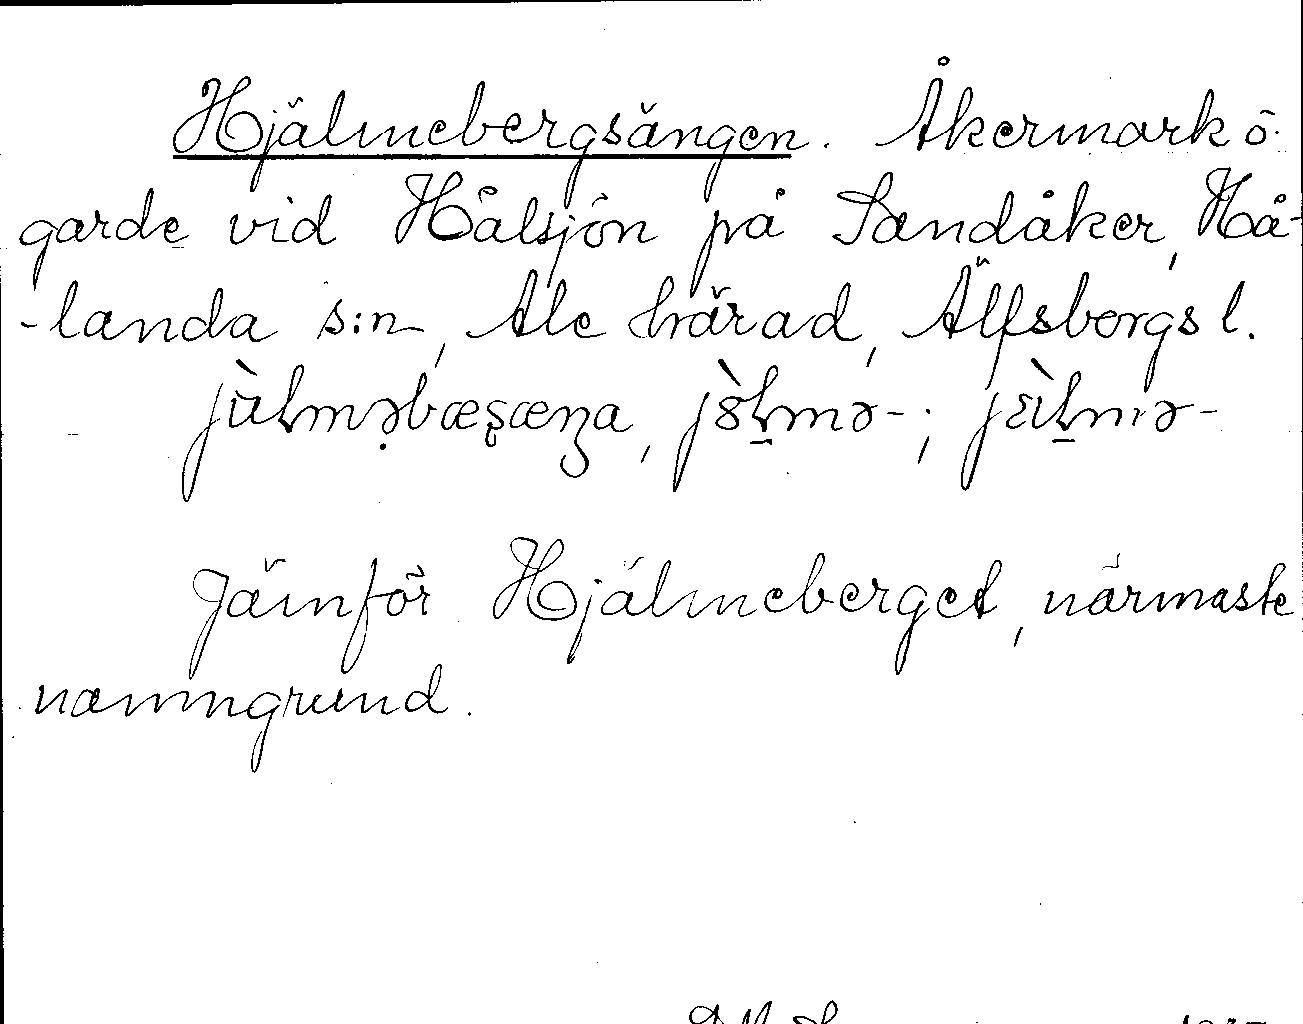 Hjälmebergsängen. Åkermark ö.
garde vid Hålsjön på Sandåker, Hå-
-landa s:n, Ale härad, Älfsborgs l.
Jämför Hjälmeberget, närmaste
namngrund.